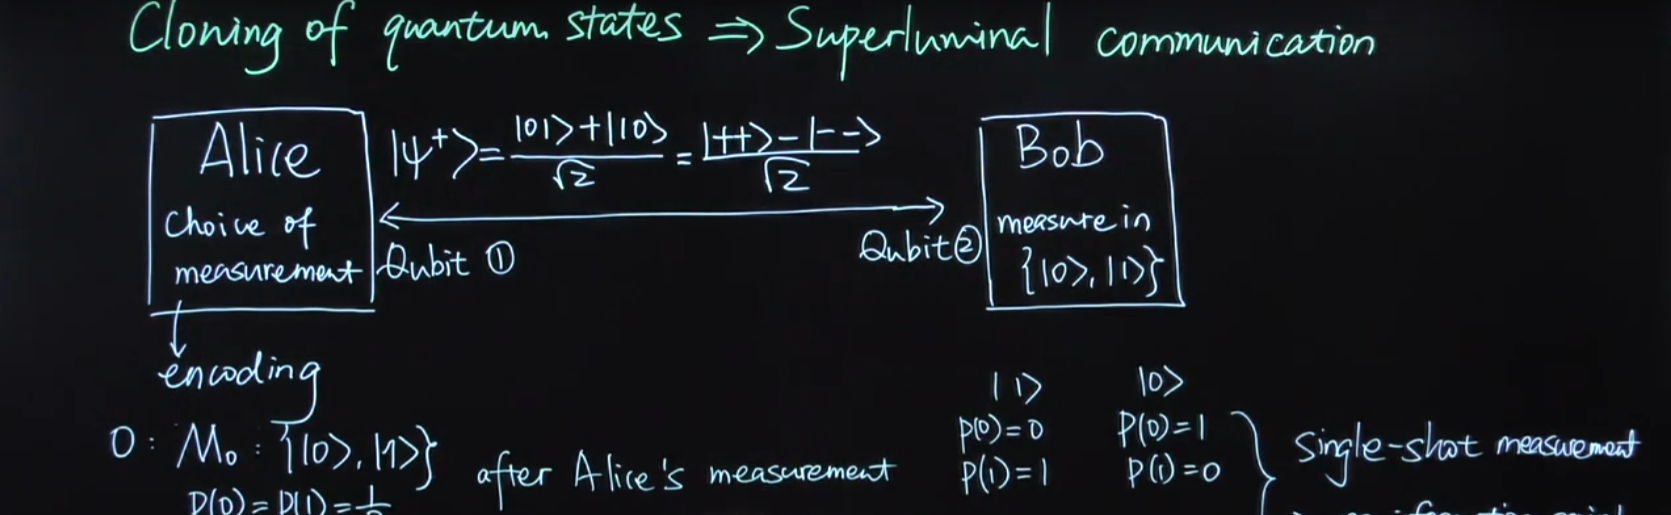 Cloning of quantum states ⇒ Superluminal communication
Alice
Choice of
measurement
|ψ⁺⟩ = (|01⟩+|10⟩)/√2 = (|++⟩−|−−⟩)/√2
Qubit ①
Qubit ②
Bob
measure in
{|0⟩, |1⟩}
encoding
0: M₀: {|0⟩, |1⟩}
P(0)=P(1)=
after Alice's measurement
|1⟩
P(0)=0
P(1)=1
|0⟩
P(0)=1
P(1)=0
Single-shot measurement